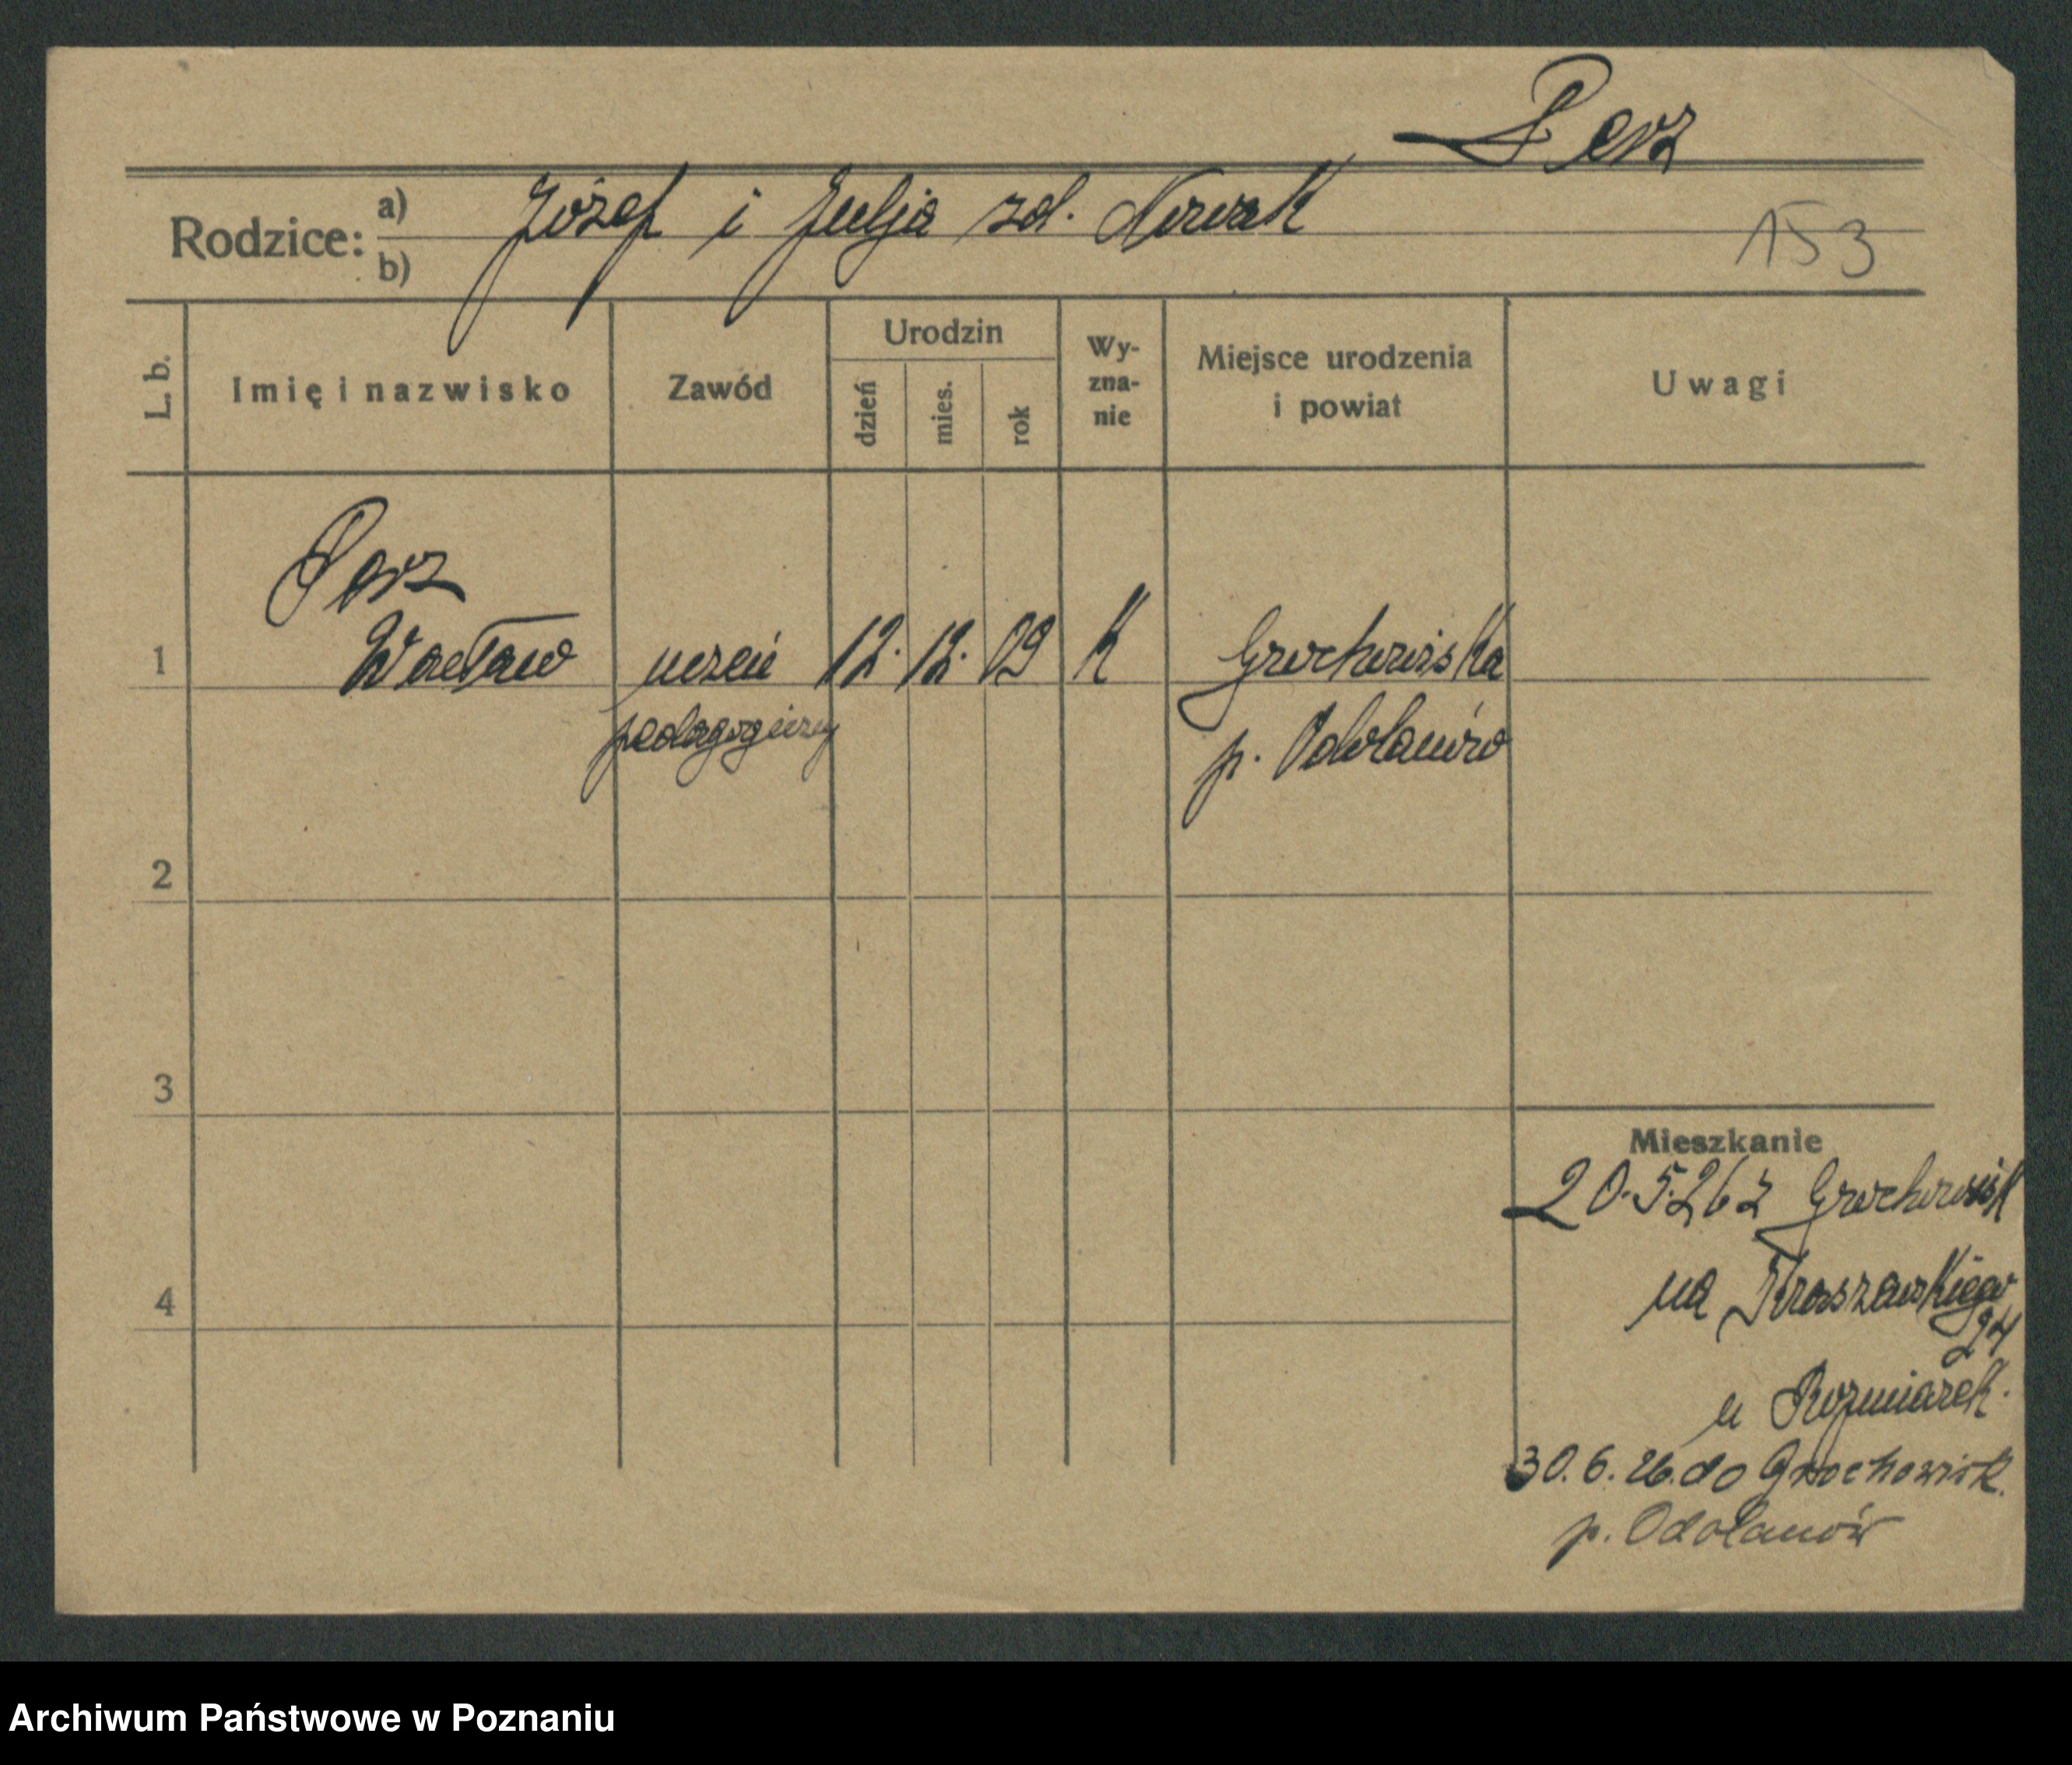 Perz
Rodzice: a) Józef i Julja zd. Nowak
b)
153
L. b.
Imię i nazwisko
Zawód
Urodzin
dzień
mies.
rok
Wy-
zna-
nie
Miejsce urodzenia
i powiat
Uwagi
Perz
1 Wacław uczeń 12. 12. 09 K Grochowiska
pedagogiczny p. Odolanów
2
3
Mieszkanie
20.5.26 z Grochowisk
na Kraszewskiego
4
u Rozmiarek.
30.6.26. do Grochowisk.
p. Odolanów
Archiwum Państwowe w Poznaniu